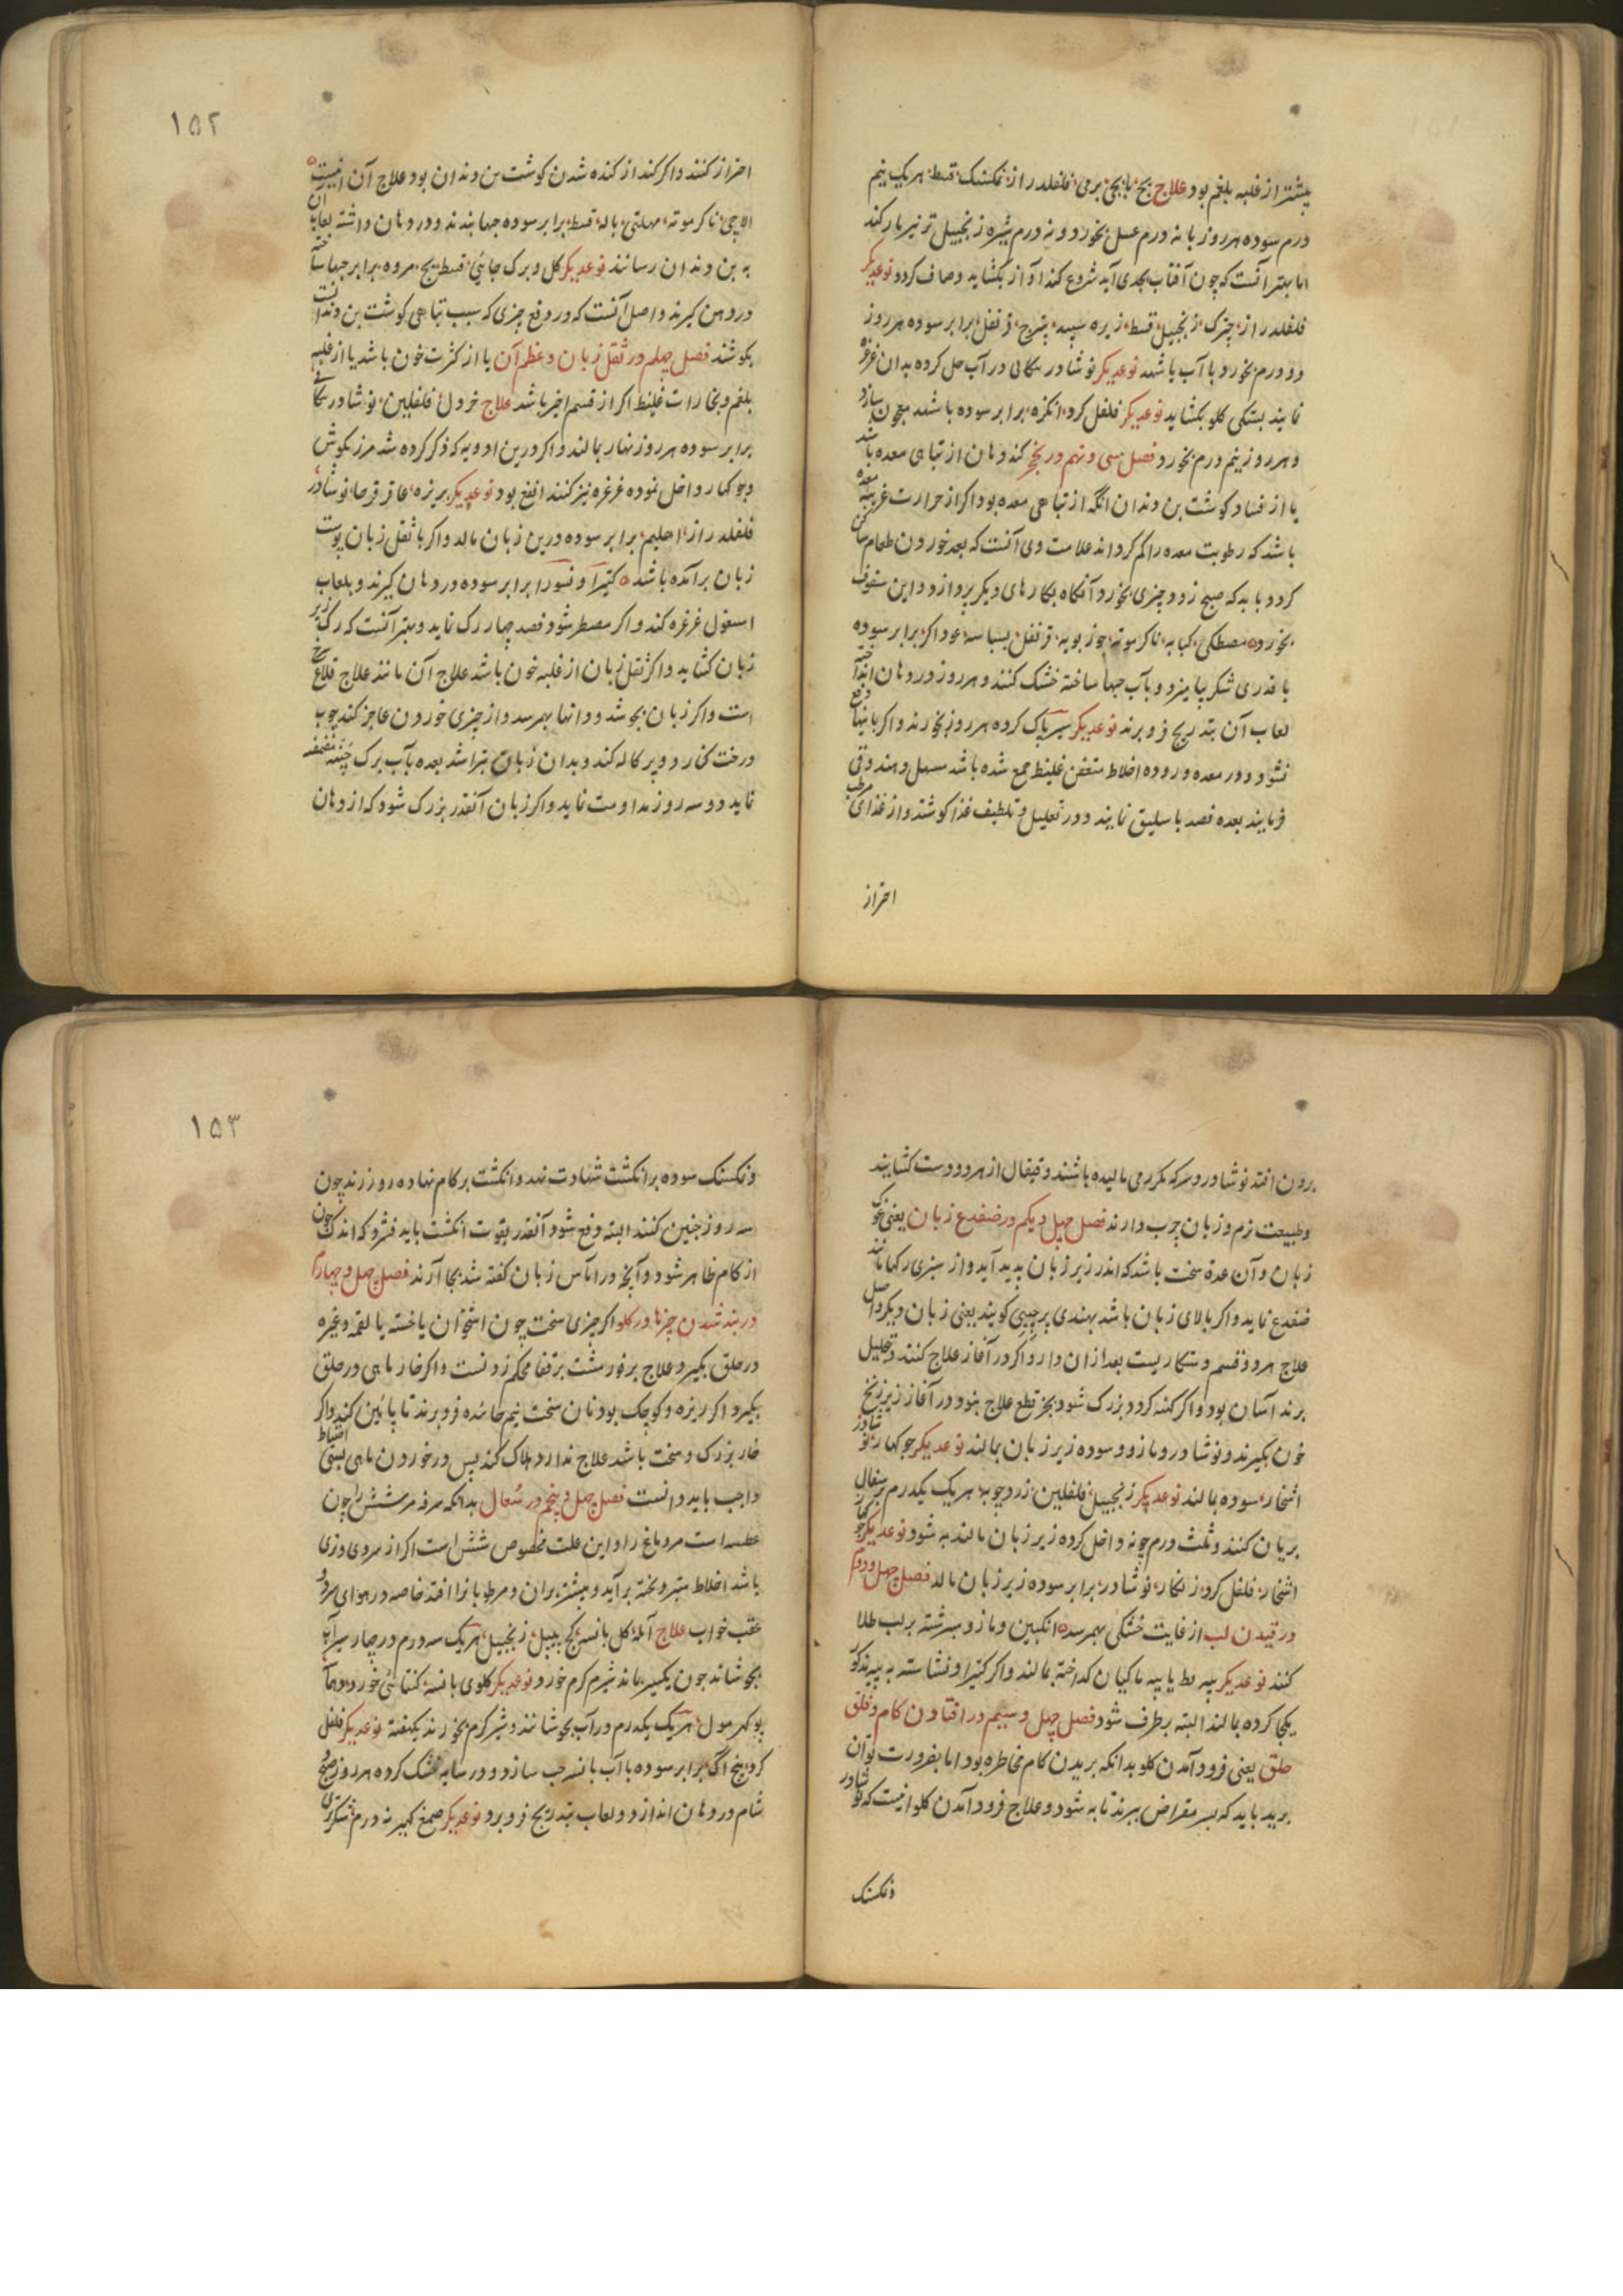 بیشتر از غلبه بلغم بود علاج بچ بابچی برمی فلفلدراز نمکسنگ قسط هر یک نیم
درم سوده هر روز با نه درم عسل بخورد و نه درم شیره زنجبیل تر نیز بار کند
اما بهتر آنست که چون آفتاب بجدی آید شروع کند آواز بکشاید و صاف کردد نوعدیکر
فلفلدراز چترک زنجبیل قسط زیره سپید پترج قرنفل برابر سوده هر روز
دو درم بخورد با آب یا شهد نوعدیکر نوشادر پیکانی در آب حل کرده بدان غرغره
نمایند بستکی کلو بکشاید نوعدیکر فلفل کرد انکزه برابر سوده با شهد معجون سازد
و هر روز نیم درم بخورد فصل سی و نهم در بخر کند دهان از تباهی معده باشد
یا از فساد کوشت بن دندان انکه از تباهی معده بود اکر از حرارت غریبه معده
باشد که رطوبت معده را کم کرداند علامت وی آنست که بعد خوردن طعام ساکن
کردد باید که صبح زود چیزی بخورد آنکاه بکارهای دیکر پردازد و این سفوف
بخورد مصطکی کبابه ناکرموته جوز بویه قرنفل بسباسه عود اکر برابر سوده
با قدری شکر بیامیزد و بآب حبها ساخته خشک کنند و هر روز در دهان انداخته
لعاب آن بتدریج فرو برند نوعدیکر سیر پاک کرده هر روز بخورند و اکر باینها دفع
نشود و در معده و روده اخلاط متعفن غلیظ جمع شده باشد مسهل و هند وقی
فرمایند بعده فصد باسلیق نمایند و در تعلیل و تلطیف غذا کوشند و از غذای مرطب
احتراز
۱۵۲
احتراز کنند و اکر کند از کنده شدن کوشت بن دندان بود علاج آن اینست
الاچی ناکرموته مهلتی باله قسط برابر سوده حبها بندند و در دهان داشته لعاب آن
به بن دندان رسانند نوعدیکر کل و برک جاپئی قسط بچ مروه برابر حبها ساخته
در دهن کیرند و اصل آنست که در دفع چیزی که سبب تباهی کوشت بن دندانست
بکوشند فصل چهلم در ثقل زبان و عظم آن یا از کثرت خون باشد یا از غلبه
بلغم و بخارات غلیظ اکر از قسم اخیر باشد علاج خردل فلفلین نوشادر پیکانی
برابر سوده هر روز نهار بمالند و اکر درین ادویه که ذکر کرده شد مرزنکوش
و جوکهار داخل نموده غرغره نیز کنند انفع بود نوعدیکر بریزه عاقرقرحا نوشادر
فلفلدراز اهلیم برابر سوده درین زبان مالد و اکر با ثقل زبان پوست
زبان برآمده باشد کتیرا و نسورا برابر سوده در دهان کیرند و بلعاب
اسغول غرغره کند و اکر مضطر شود فصد چهار رک نماید و بهتر آنست که رک زیر
زبان کشاید و اکر ثقل زبان از غلبه خون باشد علاج آن مانند علاج قلاع سرخ
است و اکر زبان بجوشد و دانها بهمرسد و از چیزی خوردن عاجز کند چوب
درخت کنار دو پرکاله کند و بدان زبان بتراشد بعده بآب برک چنبه مضمضه
نماید دو سه روز مداومت نماید و اکر زبان آنقدر بزرک شود که از دهان
برون افتد نوشادر و سرکه مکرر می مالیده باشند و قیفال از هر دو دست کشایند
و طبیعت نرم و زبان چرب دارند فصل چهل و یکم در ضفدع زبان یعنی غوک
زبان و آن غدهٔ سخت باشد که اندر زیر زبان پدید آید و از سبزی رکها مانند
ضفدع نماید و اکر بالای زبان باشد بهندی پرجیبی کویند یعنی زبان دیکر و اصل
علاج هر دو قسم دستکاریست بعد ازان دارو اکر در آغاز علاج کنند و تحلیل
برند آسان بود و اکر کهنه کردد و بزرک شود بجز قطع علاج نبود در آغاز زیر زنخ
خون بکیرند و نوشادر و مازو سوده زیر زبان بمالند نوعدیکر جوکهار نوشادر
اشخار سوده بمالند نوعدیکر زنجبیل فلفلین زردچوبه هر یک یکدرم بر سفال
بریان کنند و ثلث درم چونه داخل کرده زیر زبان مالند به شود نوعدیکر جوکهار
اشخار فلفل کرد زنکار نوشادر برابر سوده زیر زبان مالد فصل چهل و دوم
در قیدن لب از غایت خشکی بهمرسد انکبین و مازو سرشته بر لب طلا
کنند نوعدیکر پیه بط یا پیه ماکیان کداخته بمالند و اکر کتیرا و نشاسته به پیه مذکور
یکجا کرده بمالند البته برطرف شود فصل چهل و سیم در افتادن کام و فلق
حلق یعنی فرود آمدن کلو بدانکه بریدن کام مخاطره بود اما بضرورت توان
برید باید که بسر مقراض ببرند تا به شود و علاج فرود آمدن کلو اینست که نوشادر
و نمکسنک
۱۵۳
و نمکسنک سوده بر انکشت شهادت نهد و انکشت بر کام نهاده روز زند چون
سه روز چنین کنند البته دفع شود آنقدر بقوت انکشت باید فشرد که اندک خون
از کام ظاهر شود و آنچه در اماس زبان کفته شد بجا آرند فصل چهل و چهارم
در بند شدن چیزها در کلو اکر چیزی سخت چون استخوان یا خسته یا لقمه و غیره
در حلق بکیرد علاج بر فور مشت بر قفا محکم زدنست و اکر خار ماهی در حلق
بکیرد اکر ریزه و کوچک بود نان سخت نیم خائیده فرو برند تا پائین کند و اکر
خار بزرک و سخت باشد علاج ندارد هلاک کند پس در خوردن ماهی بسی احتیاط
واجب باید دانست فصل چهل و پنجم در سعال بدانکه سرفه مر شش را چون
عطسه است مر دماغ را و این علت مخصوص شش است اکر از سردی و تری
باشد اخلاط ستبر و پخته برآید و بیشتر پیران و مرطوبانرا افتد خاصه در هوای سرد و
عقب خواب علاج آمله کل بانسه کج پیپل زنجبیل هر یک سه درم در چهار سیر آب
بجوشاند چون یکسیر بماند شیرم کرم خورد نوعدیکر کلوی بانسه کنتائی خورد و دهماسه
پوکهرمول هر یک یکدرم در آب بجوشانند و شیر کرم بخورند یکهفته نوعدیکر فلفل
کرد بیخ آک برابر سوده با آب بانسه حب سازد و در سایه خشک کرده هر روز صبح و
شام در دهان اندازد و لعاب بتدریج فرو برد نوعدیکر صمغ کهیر نه درم شکر تری